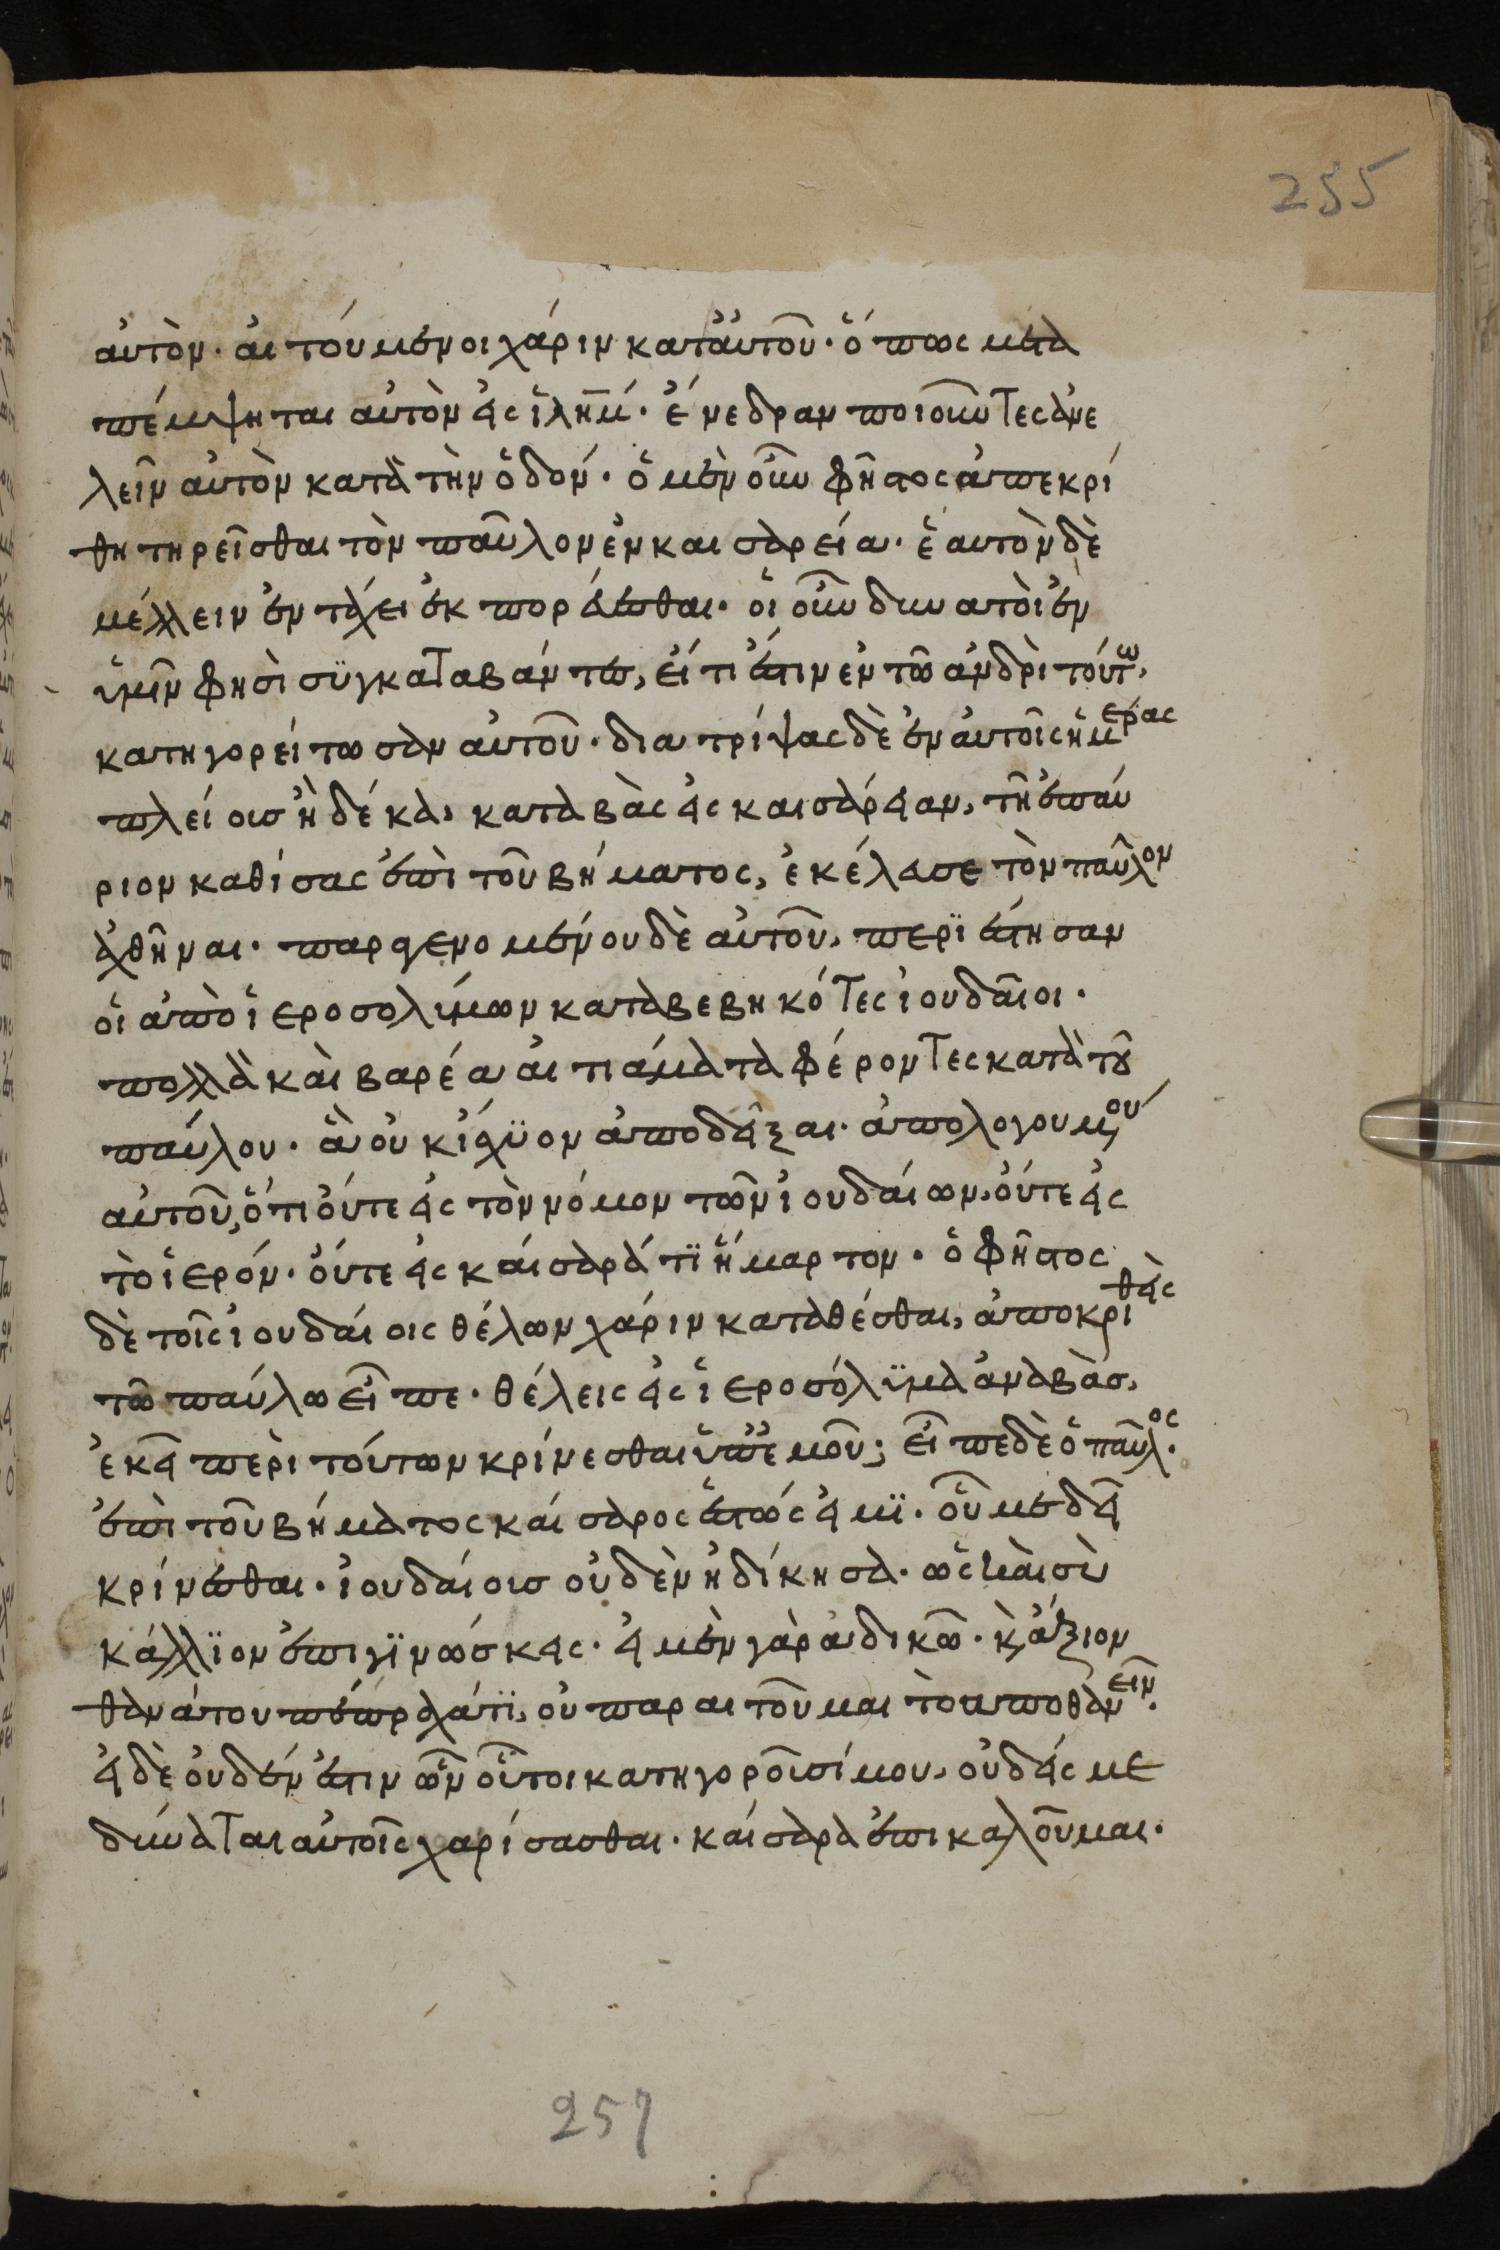 255
αὐτὸν· αἰτούμενοι χάριν κατ' αὐτοῦ· ὅπως μετα
πέμψηται αὐτὸν εἰς ἱλημ· ἐνεδραν ποιοῦντες ἀνε
λεῖν αὐτὸν κατὰ τὴν ὁδόν· ὁ μὲν οὖν φῆστος ἀπεκρί
θη τηρεῖσθαι τὸν παῦλον ἐν καισαρεία· ἑαυτὸν δὲ
μέλλειν ἐν τάχει ἐκπορεύεσθαι· οἱ οὖν δυνατοὶ ἐν
ὑμῖν φησὶ συγκαταβάντες, εἴ τι ἐστὶν ἐν τῶ ἀνδρὶ τούτω,
κατηγορείτωσαν αὐτοῦ· διατρίψας δὲ ἐν αὐτοῖς ἡμέρας
πλείουσ ἢ δέκα, καταβὰς εἰς καισάρειαν, τῆ ἐπαύ
ριον καθίσας ἐπὶ τοῦ βήματος, ἐκέλευσε τὸν παῦλον
ἀχθῆναι· παραγενομένου δὲ αὐτοῦ, περϊέστησαν
οἱ ἀπὸ ἱεροσολύμων καταβεβηκότες ἰουδαῖοι·
πολλὰ καὶ βαρέα αἰτιάματα φέροντες κατὰ τοῦ
παύλου· ἃ οὐκ ἴσχϋον ἀποδεῖξαι· ἀπολογουμένου
αὐτοῦ, ὅτι οὔτε εἰς τὸν νόμον τῶν ἰουδαίων, οὔτε εἰς
τὸ ἱερόν· οὔτε εἰς καίσαρά τϊ ἥμαρτον· ὁ φῆστος
δὲ τοῖς ἰουδαίοις θέλων χάριν καταθέσθαι, ἀποκριθεὶς
τῶ παύλω εἶπε· θέλεις εἰς ἱεροσόλϋμα ἀναβὰσ,
ἐκεῖ περὶ τούτων κρίνεσθαι ὑπ' ἐμοῦ; εἶπε δὲ ὁ παῦλος·
ἐπὶ τοῦ βήματος καίσαρος ἑστώς εἰμϊ· οὗ με δεῖ
κρίνεσθαι· ἰουδαίουσ οὐδὲν ἠδίκησα· ὡς καὶ σὺ
κάλλϊον ἐπιγϊνώσκεις· εἰ μὲν γὰρ ἀδικῶ· καὶ ἄξιον
θανάτου πέπραχά τϊ, οὐ παραιτοῦμαι τὸ ἀποθανεῖν·
εἰ δὲ οὐδέν ἐστιν ὧν οὗτοι κατηγοροῦσί μου, οὐδείς με
δύναται αὐτοῖς χαρίσασθαι· καίσαρα ἐπικαλοῦμαι·
257